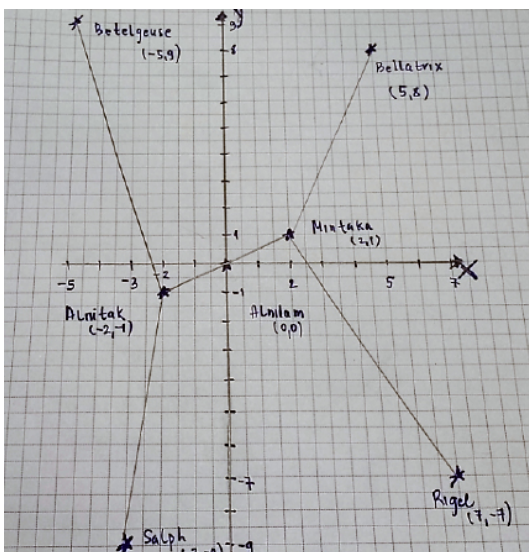 y
9
Betelgeuse
(-5,9)
8
Bellatrix
(5,8)
1
Mintaka
(2,1)
-5
-3
-2
2
5
7
X
-1
Alnitak
(-2,-1)
Alnilam
(0,0)
-7
Rigel
(7,-7)
Salph
-9